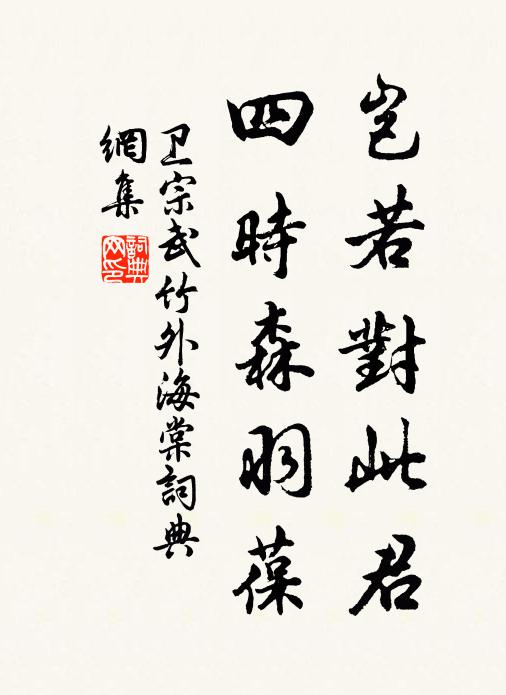 岂若對此君
四時森羽葆
卫宗武竹外海棠詞典
網集
詞典网印